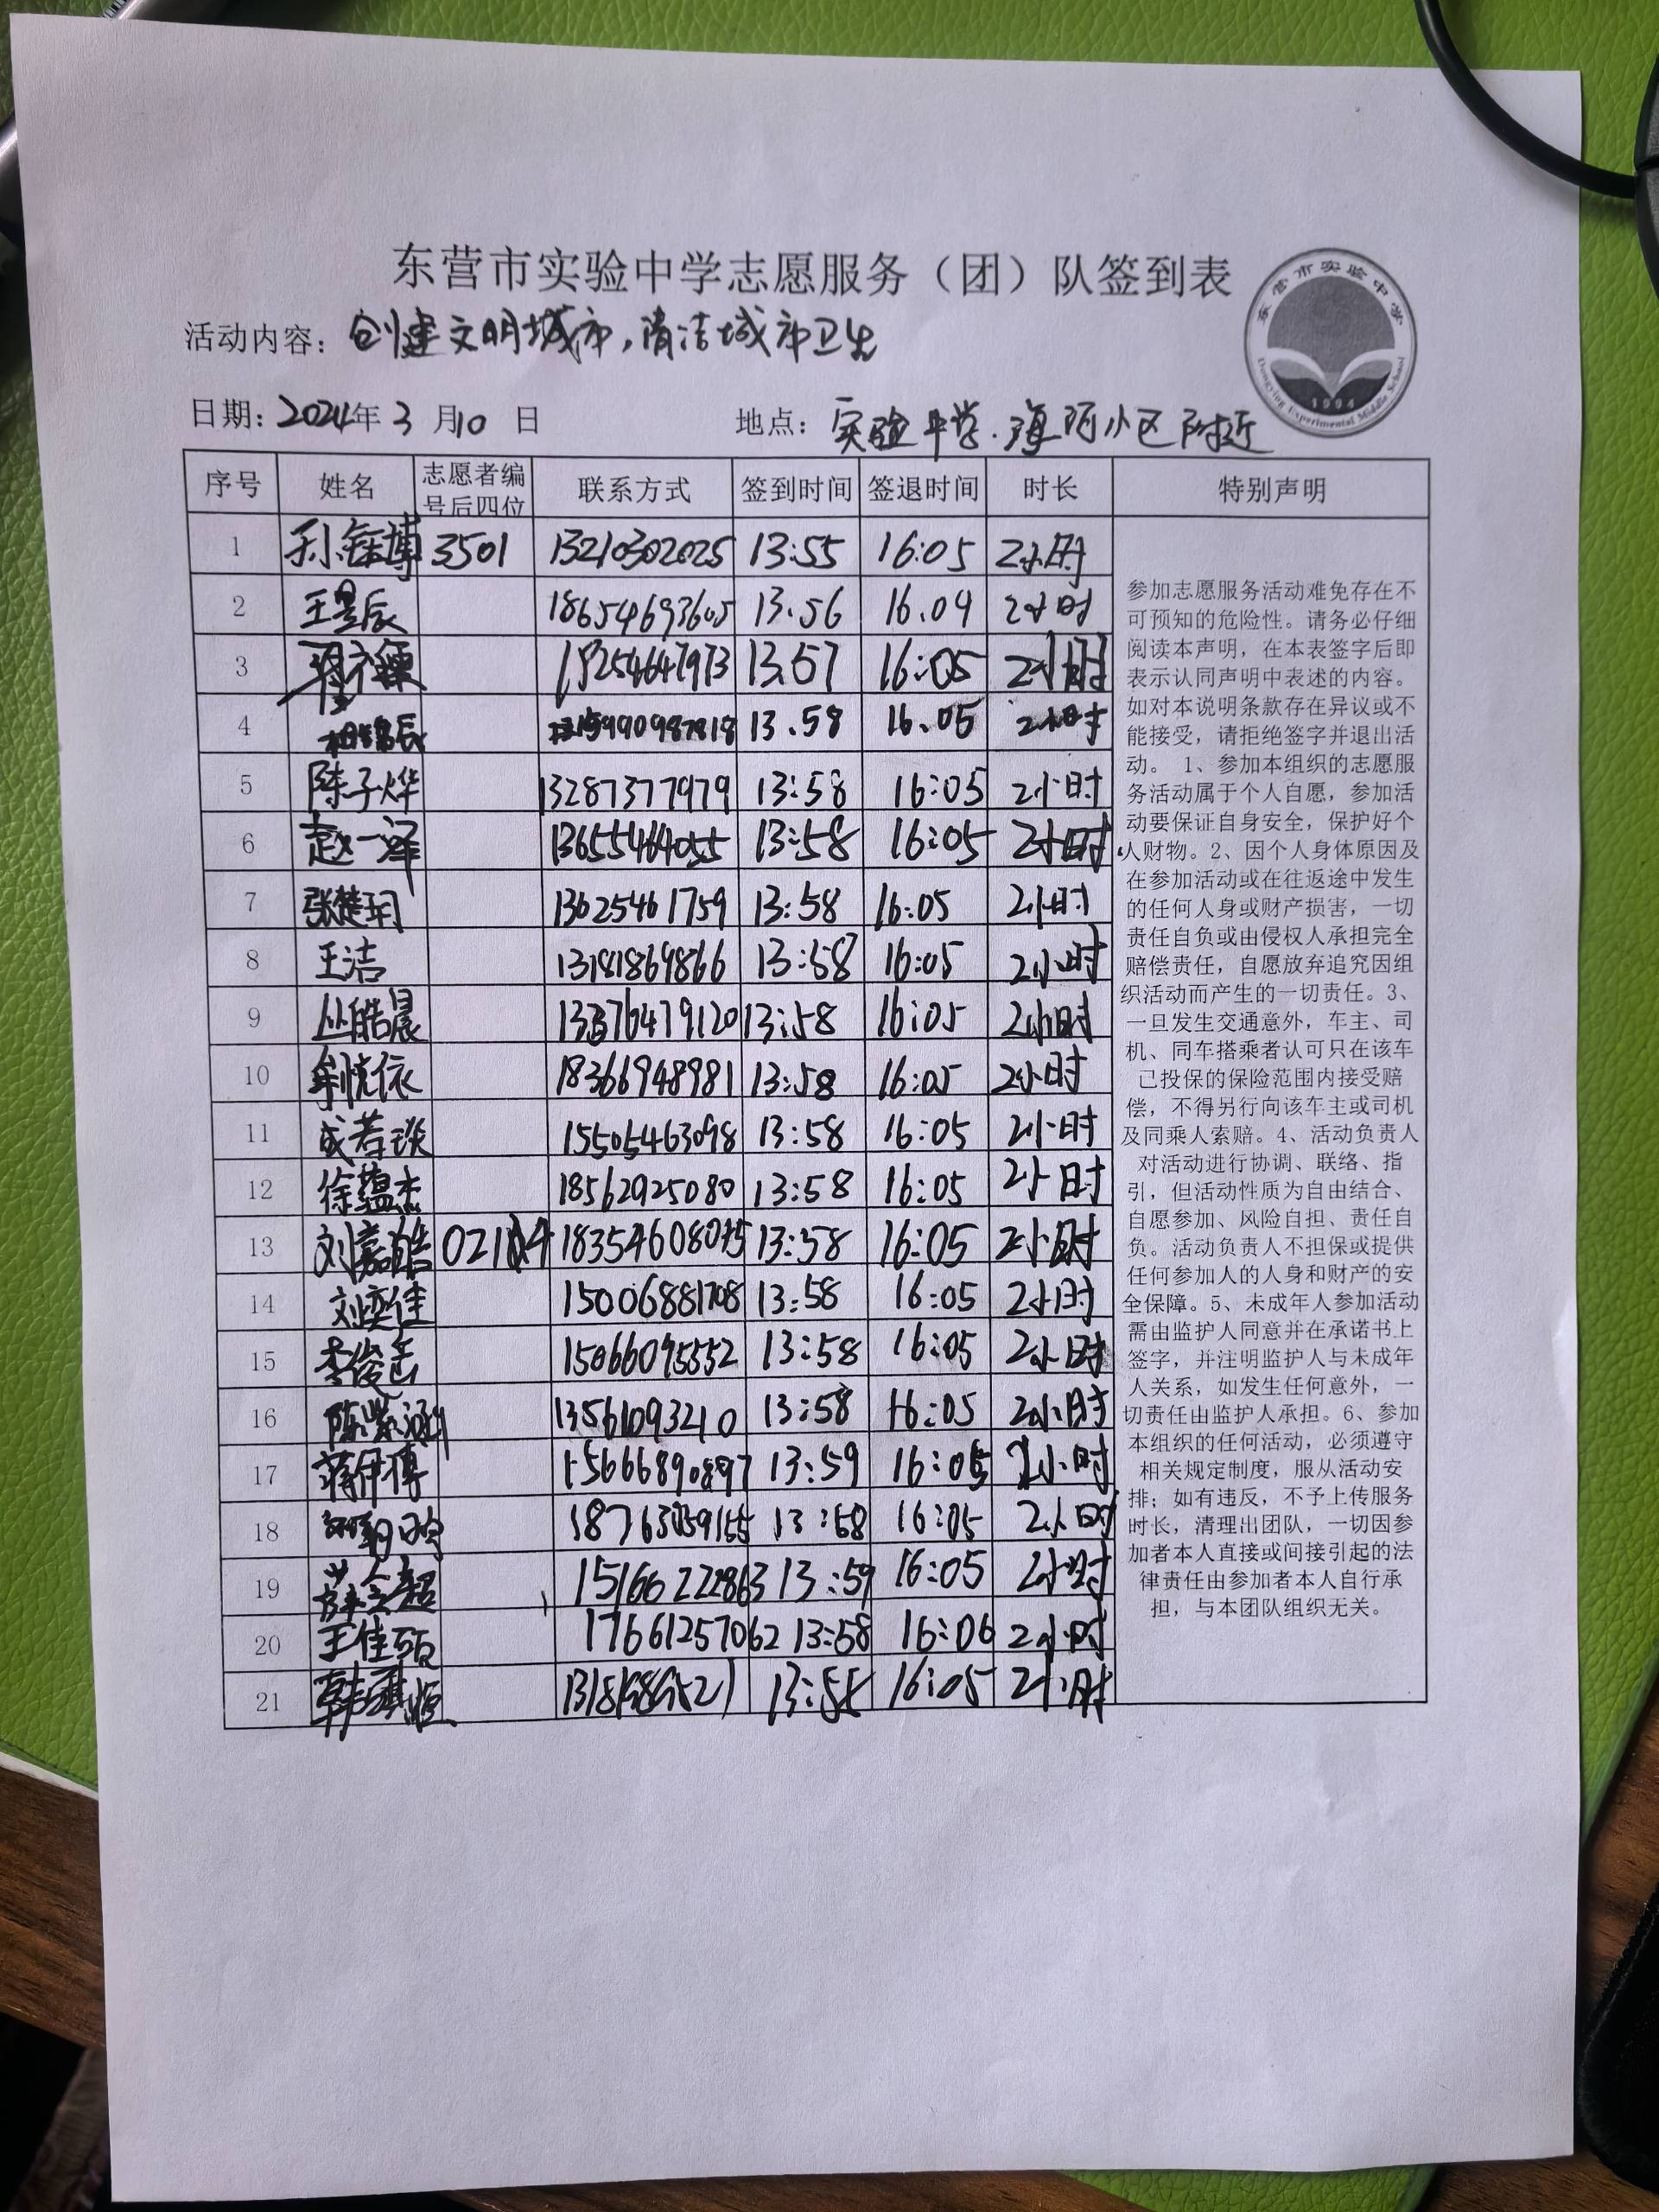 东营市实验中学志愿服务（团）队签到表
东营市实验中学
Dongying Experimental Middle School
1994
活动内容：创建文明城市，清洁城市卫生
日期：2024年3月10日 地点：实验中学.海河小区附近
序号 姓名 志愿者编号后四位 联系方式 签到时间 签退时间 时长 特别声明
1 孙鑫博 3501 13210302025 13:55 16:05 2小时
2 王昱辰 18654693605 13.56 16.04 2小时
3 15254647973 13.57 16:05 2小时
4 13.58 16.05 2小时
5 陈子烨 13287377979 13:58 16:05 2小时
6 赵一泽 13655464055 13:58 16:05 2小时
7 张楚玥 13625461759 13:58 16:05 2小时
8 王洁 13181869866 13:58 16:05 2小时
9 丛皓晨 13376479120 13:58 16:05 2小时
10 牟悦依 18366948981 13:58 16:05 2小时
11 成若谈 15505463098 13:58 16:05 2小时
12 徐蕴杰 18562925080 13:58 16:05 2小时
13 刘嘉皓 13:58 16:05 2小时
14 刘奕佳 15006881708 13:58 16:05 2小时
15 15066095552 13:58 16:05 2小时
16 陈紫涵 13561093210 13:58 16:05 2小时
17 蒋伊博 15666890897 13:59 16:05 2小时
18 13:58 16:05 2小时
19 薛金超 15166222863 13:59 16:05 2小时
20 王佳 17661257062 13:58 16:06 2小时
21 13:58 16:05 2小时
参加志愿服务活动难免存在不
可预知的危险性。请务必仔细
阅读本声明，在本表签字后即
表示认同声明中表述的内容。
如对本说明条款存在异议或不
能接受，请拒绝签字并退出活
动。 1、参加本组织的志愿服
务活动属于个人自愿，参加活
动要保证自身安全，保护好个
人财物。2、因个人身体原因及
在参加活动或在往返途中发生
的任何人身或财产损害，一切
责任自负或由侵权人承担完全
赔偿责任，自愿放弃追究因组
织活动而产生的一切责任。3、
一旦发生交通意外，车主、司
机、同车搭乘者认可只在该车
己投保的保险范围内接受赔
偿，不得另行向该车主或司机
及同乘人索赔。4、活动负责人
对活动进行协调、联络、指
引，但活动性质为自由结合、
自愿参加、风险自担、责任自
负。活动负责人不担保或提供
任何参加人的人身和财产的安
全保障。5、未成年人参加活动
需由监护人同意并在承诺书上
签字，并注明监护人与未成年
人关系，如发生任何意外，一
切责任由监护人承担。6、参加
本组织的任何活动，必须遵守
相关规定制度，服从活动安
排；如有违反，不予上传服务
时长，清理出团队，一切因参
加者本人直接或间接引起的法
律责任由参加者本人自行承
担，与本团队组织无关。